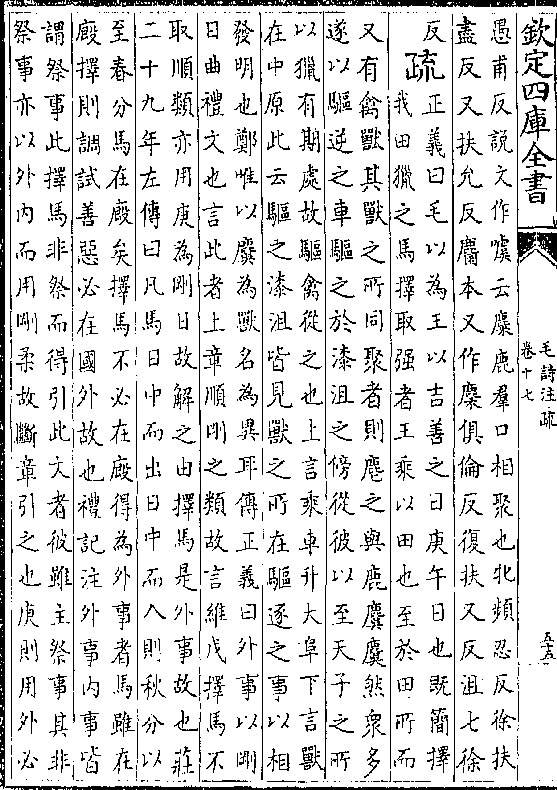 欽定四庫全書
毛詩注疏
卷十七
愚甫反說文作噳云麋鹿羣口相聚也牝頻忍反徐扶
盡反又扶允反麕本又作麇俱倫反復扶又反沮七徐
反
疏
正義曰毛以為王以吉善之日庚午日也既簡擇
我田獵之馬擇取强者王乘以田也至於田所而
又有禽獸其獸之所同聚者則麀之與鹿麌麌然衆多
遂以驅逆之車驅之於漆沮之傍從彼以至天子之所
以獵有期處故驅禽從之也上言乘車升大阜下言獸
在中原此云驅之漆沮皆見獸之所在驅逐之事以相
發明也鄭唯以麌為獸名為異耳傳正義曰外事以剛
日曲禮文也言此者上章順剛之類故言維戊擇馬不
取順類亦用庚為剛日故解之由擇馬是外事故也莊
二十九年左傳曰凡馬日中而出日中而入則秋分以
至春分馬在廏矣擇馬不必在廏得為外事者馬雖在
廏擇則調試善惡必在國外故也禮記注外事內事皆
謂祭事此擇馬非祭而得引此文者彼雖主祭事其非
祭事亦以外內而用剛柔故斷章引之也庚則用外必